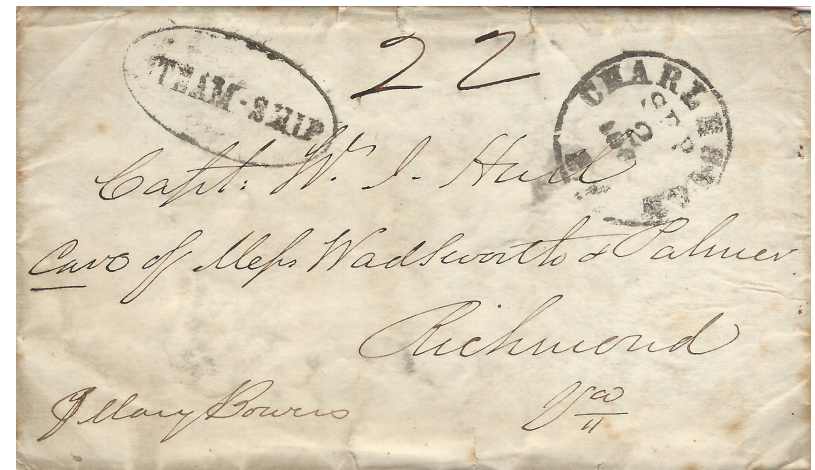 22
STEAM-SHIP
CHARLESTON
SEP
Capt: Wm. J. Hall
Care of Mess Wadsworth & Palmer.
Richmond
Va
Mary Bowers